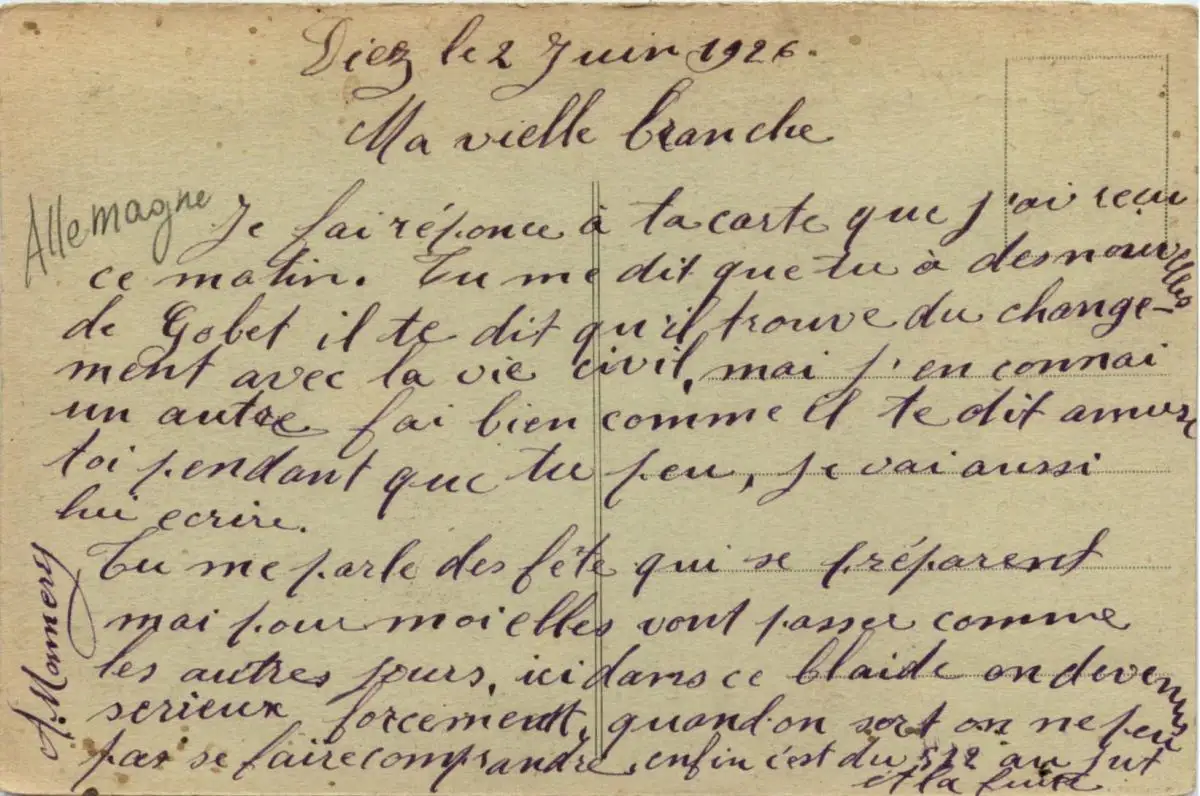 Diez le 2 Juin 1926.
Ma vielle branche
Allemagne
Je fai réponce à ta carte que j'ai reçu
ce matin. Tu me dit que tu à des nouvelles
de Gobet il te dit qu'il trouve du change-
ment avec la vie civil, mai j'en connai
un autre fai bien comme il te dit amuse
toi pendant que tu peu, je vai aussi
lui ecrire.
Tu me parle des fête qui se préparent
mai pour moi elles vont passer comme
les autres jours, ici dans ce blaide on devenus
serieux forcement, quand on sort on ne peu
pas se faire comprandre, enfin c'est du 522 au jut
et la fuite